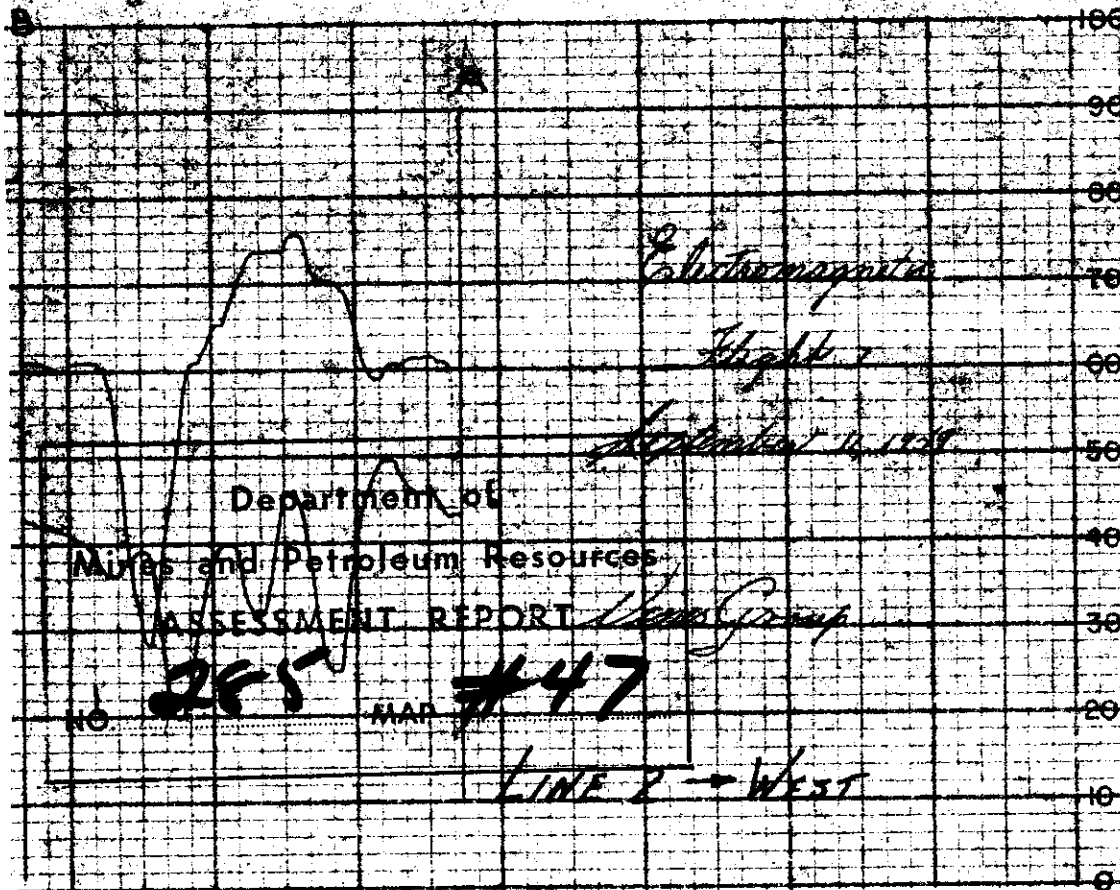 B
A
100
90
80
70
60
50
40
30
20
10
0
Electromagnetic
Flight
September 11, 
Department of
Mines and Petroleum Resources
ASSESSMENT REPORT
Group
NO. 285 MAP #47
LINE 2 → WEST